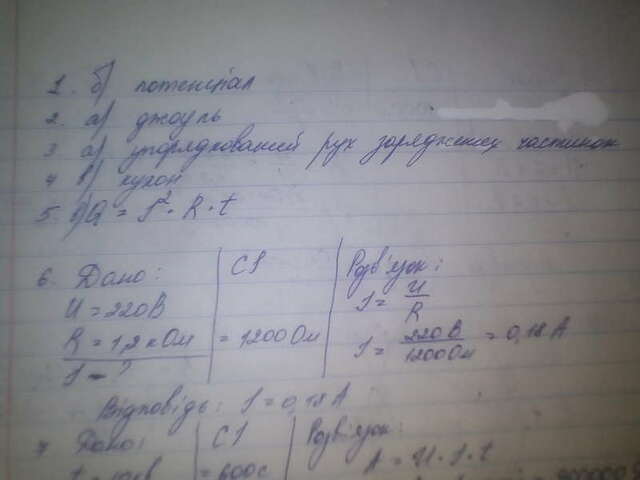 1. б) потенціал
2. а) джоуль
3 а) упорядкований рух заряджених частинок
4 в) кулон
5. в) Q = I² · R · t
6. Дано: СІ Розв'язок:
U = 220 В I = U/R
R = 1,2 кОм = 1200 Ом I = 220 В/1200 Ом = 0,18 А
I - ?
Відповідь: I = 0,18 А
7 Дано: СІ Розв'язок:
= 600с A = U · I · t